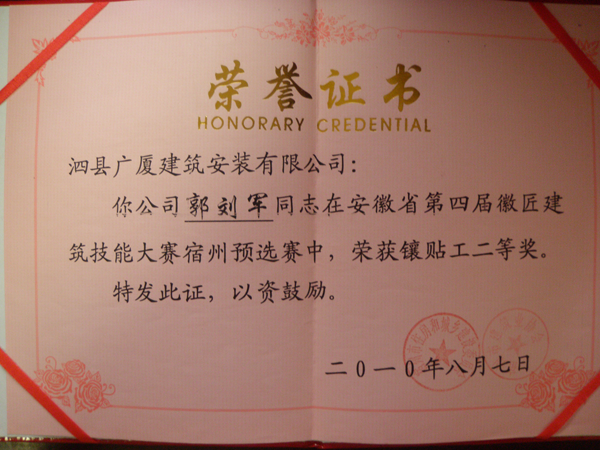 荣誉证书
HONORARY CREDENTIAL
泗县广厦建筑安装有限公司：
你公司郭刘军同志在安徽省第四届徽匠建
筑技能大赛宿州预选赛中，荣获镶贴工二等奖。
特发此证，以资鼓励。
二〇一〇年八月七日